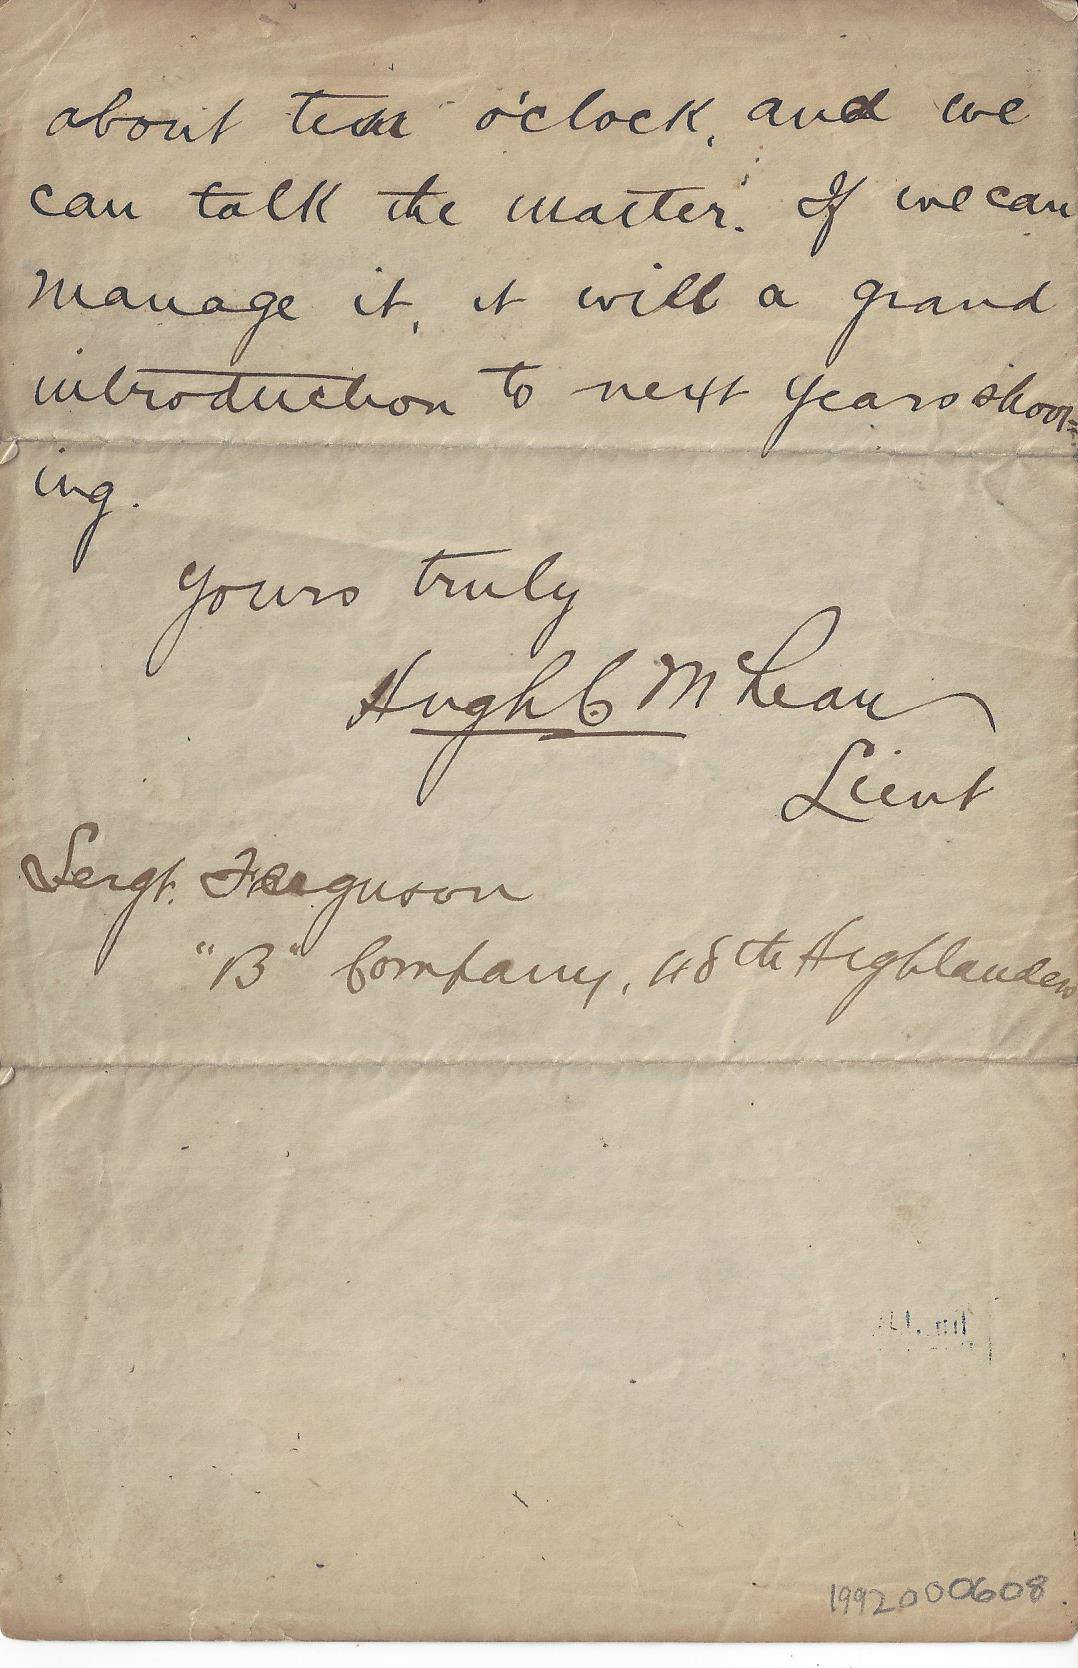 about ten o'clock, and we
can talk the matter. If we can
manage it, it will a grand
introduction to next years shoot=
ing.
Yours truly
Hugh C McLean
Lieut
Sergt. Ferguson
"B" Company, 48th Highlanders
1992000608